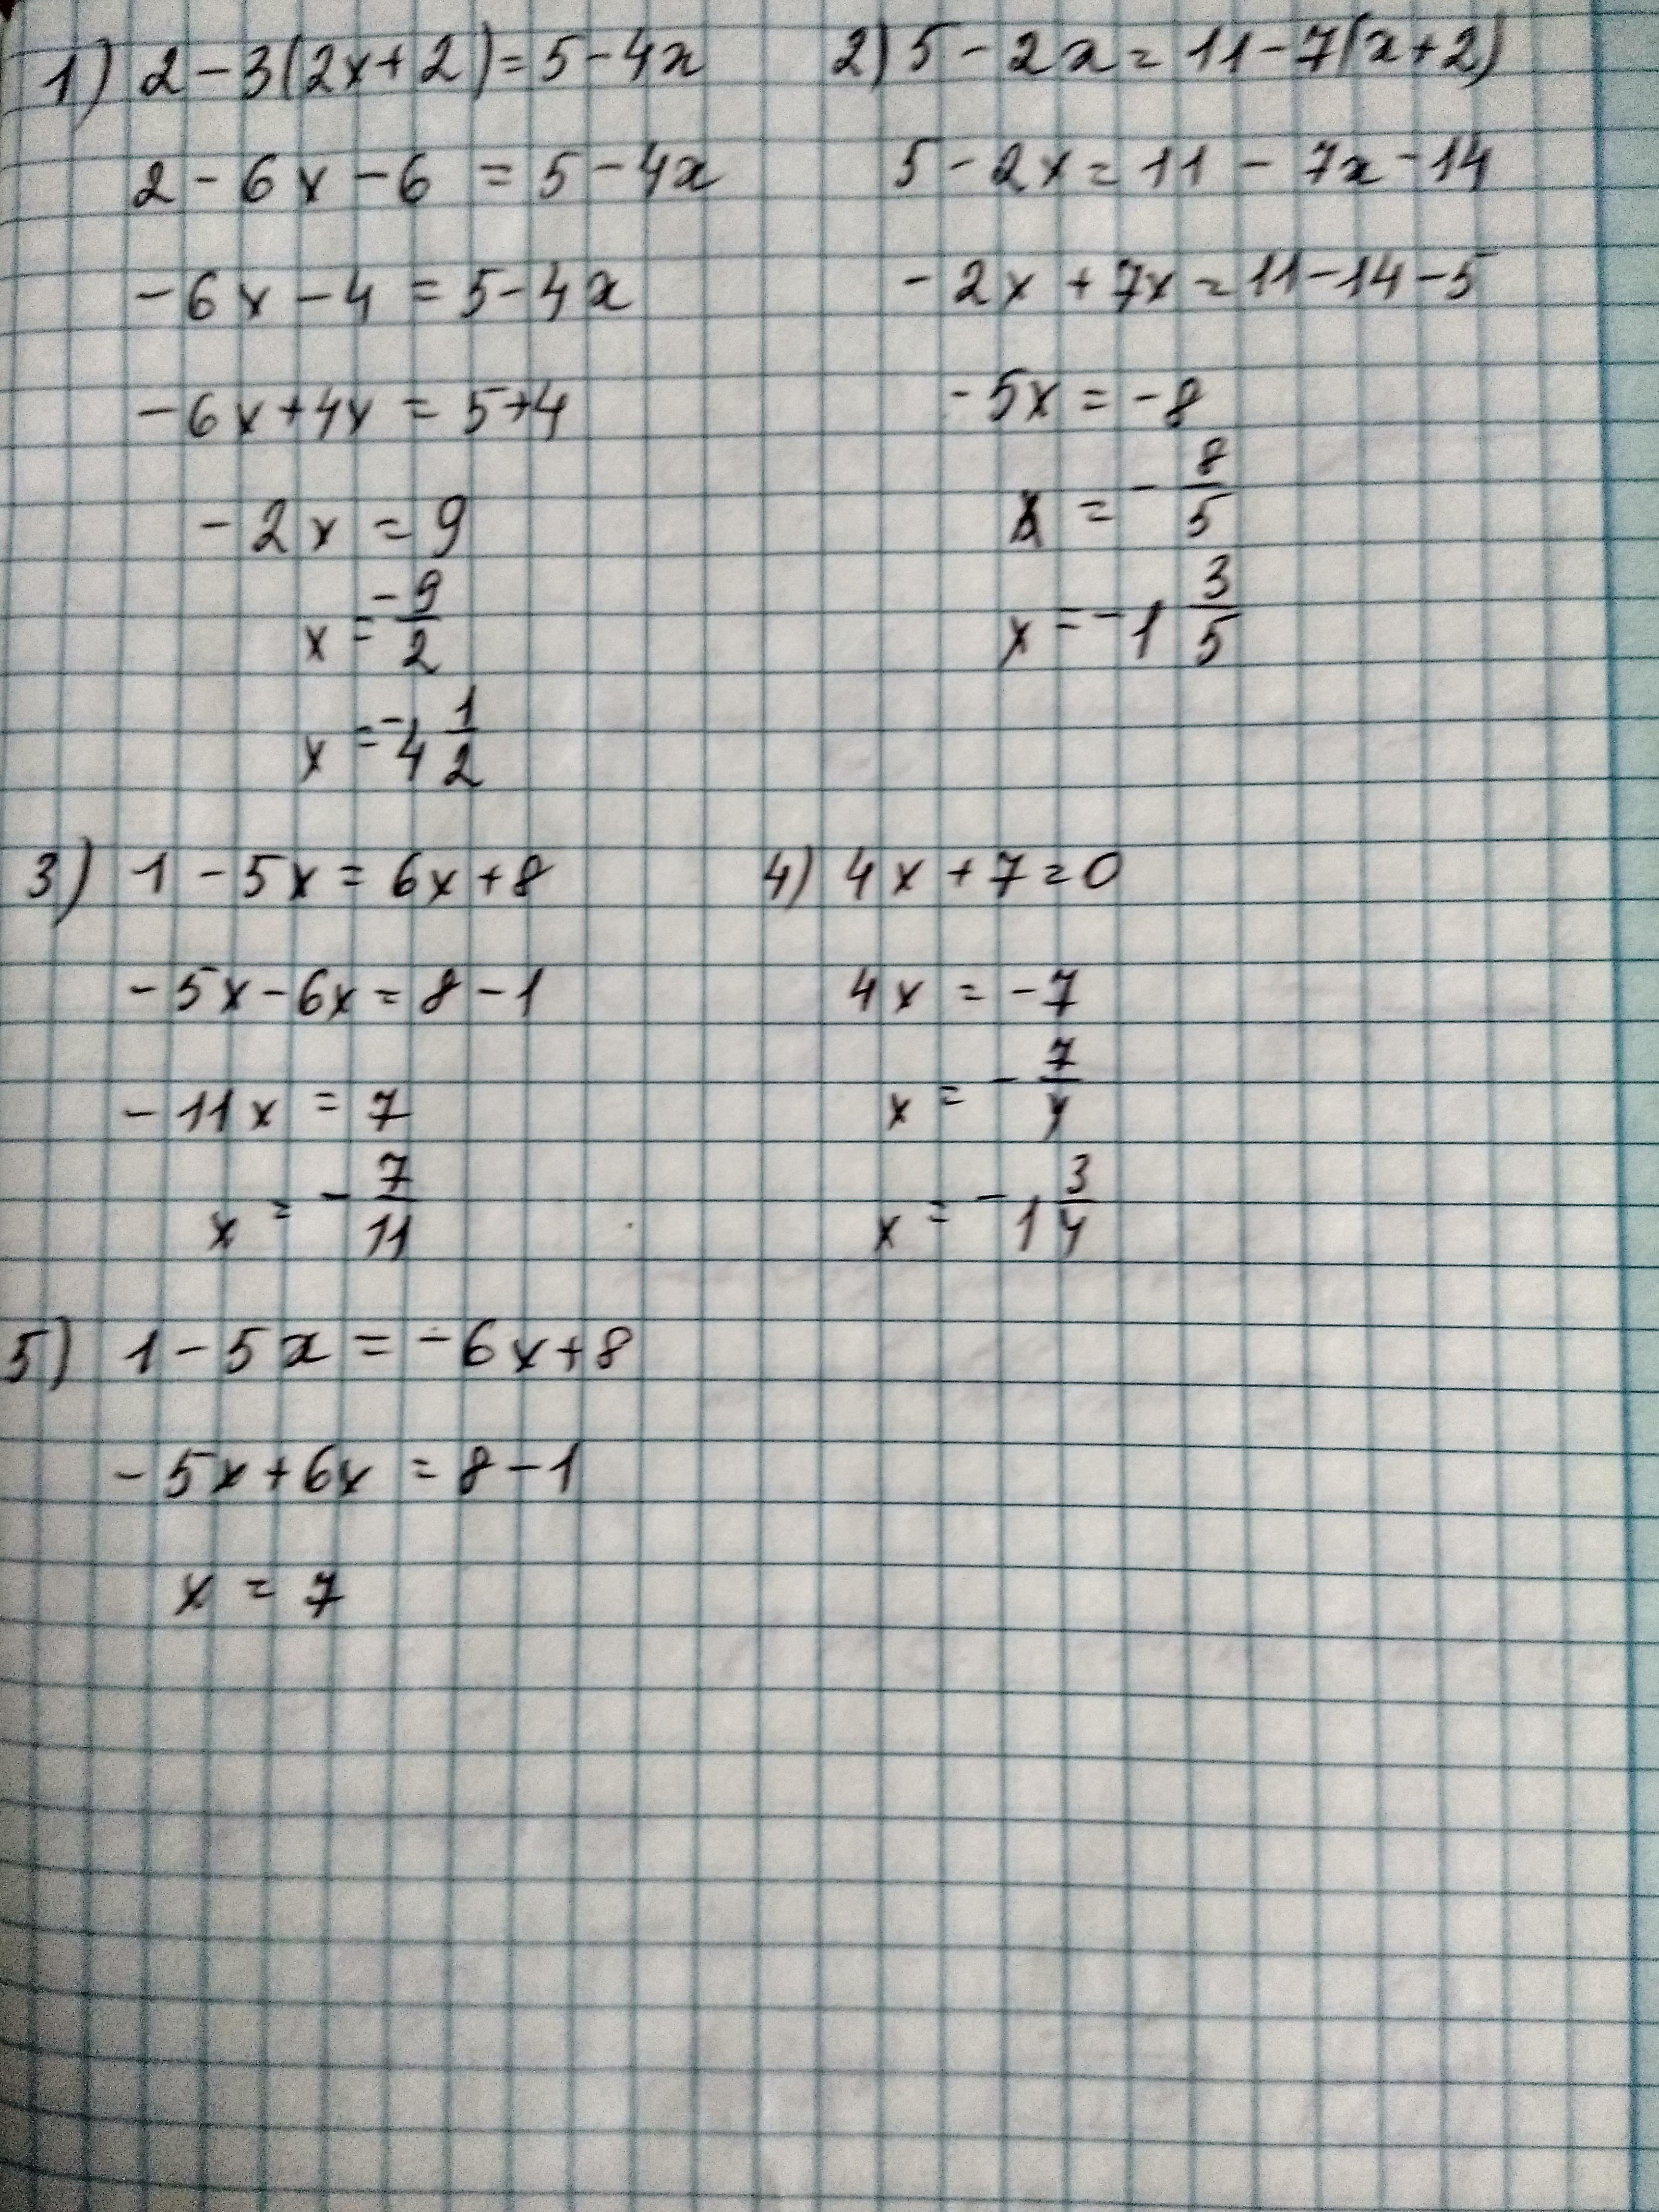 1) 2-3(2x+2)=5-4x
2-6x-6=5-4x
-6x-4=5-4x
-6x+4x=5+4
-2x=9
x=-9/2
x=-4 1/2
2) 5-2x=11-7(x+2)
5-2x=11-7x-14
-2x+7x=11-14-5
-5x=-8
x=-8/5
x=-1 3/5
3) 1-5x=6x+8
-5x-6x=8-1
-11x=7
x=-7/11
4) 4x+7=0
4x=-7
x=-7/4
x=-1 3/4
5) 1-5x=-6x+8
-5x+6x=8-1
x=7